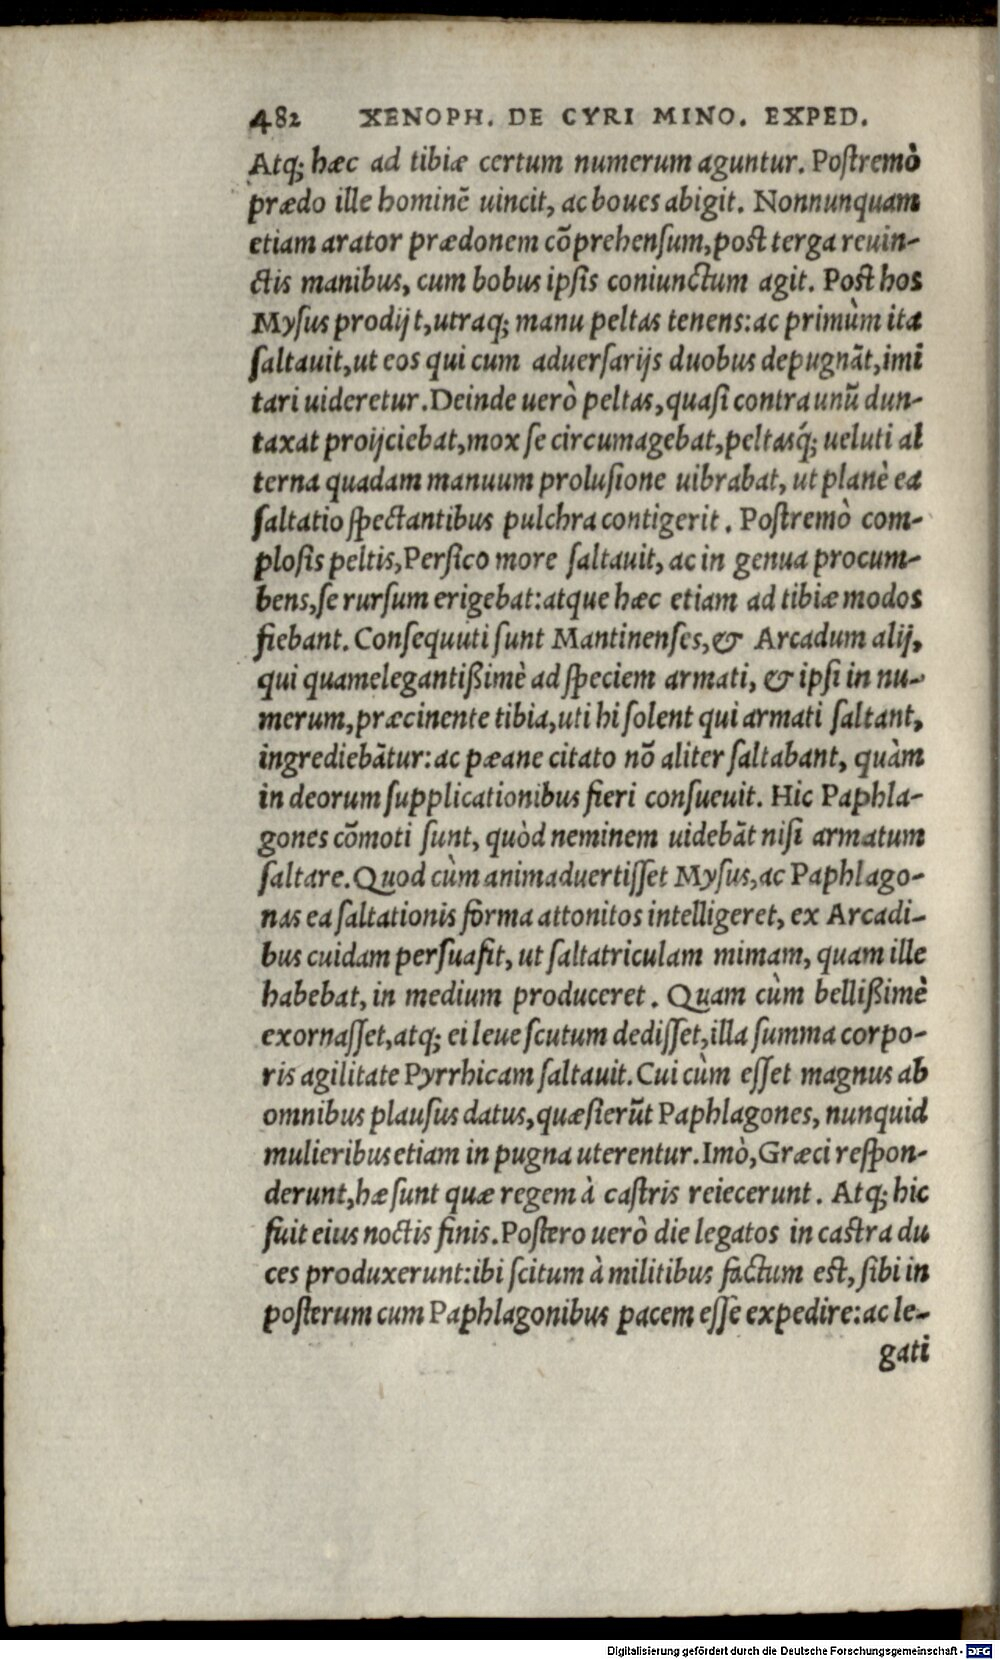 482 XENOPH. DE CYRI MINO. EXPED.
Atq; hæc ad tibiæ certum numerum aguntur. Postremò
prædo ille hominē uincit, ac boues abigit. Nonnunquam
etiam arator prædonem cōprehensum, post terga reuin-
ctis manibus, cum bobus ipsis coniunctum agit. Post hos
Mysus prodijt, utraq; manu peltas tenens: ac primùm ita
saltauit, ut eos qui cum aduersarijs duobus depugnāt, imi
tari uideretur. Deinde uerò peltas, quasi contra unū dun-
taxat proijciebat, mox se circumagebat, peltasq́; ueluti al
terna quadam manuum prolusione uibrabat, ut planè ea
saltatio spectantibus pulchra contigerit. Postremò com-
plosis peltis, Persico more saltauit, ac in genua procum-
bens, se rursum erigebat: atque hæc etiam ad tibiæ modos
fiebant. Consequuti sunt Mantinenses, & Arcadum alij,
qui quamelegantißimè ad speciem armati, & ipsi in nu-
merum, præcinente tibia, uti hi solent qui armati saltant,
ingrediebātur: ac pæane citato nō aliter saltabant, quàm
in deorum supplicationibus fieri consueuit. Hic Paphla-
gones cōmoti sunt, quòd neminem uidebāt nisi armatum
saltare. Quod cùm animaduertisset Mysus, ac Paphlago-
nas ea saltationis forma attonitos intelligeret, ex Arcadi-
bus cuidam persuasit, ut saltatriculam mimam, quam ille
habebat, in medium produceret. Quam cùm bellißimè
exornasset, atq; ei leue scutum dedisset, illa summa corpo-
ris agilitate Pyrrhicam saltauit. Cui cùm esset magnus ab
omnibus plausus datus, quæsierūt Paphlagones, nunquid
mulieribus etiam in pugna uterentur. Imò, Græci respon-
derunt, hæ sunt quæ regem à castris reiecerunt. Atq; hic
fuit eius noctis finis. Postero uerò die legatos in castra du
ces produxerunt: ibi scitum à militibus factum est, sibi in
posterum cum Paphlagonibus pacem esse expedire: ac le-
gati
Digitalisierung gefördert durch die Deutsche Forschungsgemeinschaft - DFG